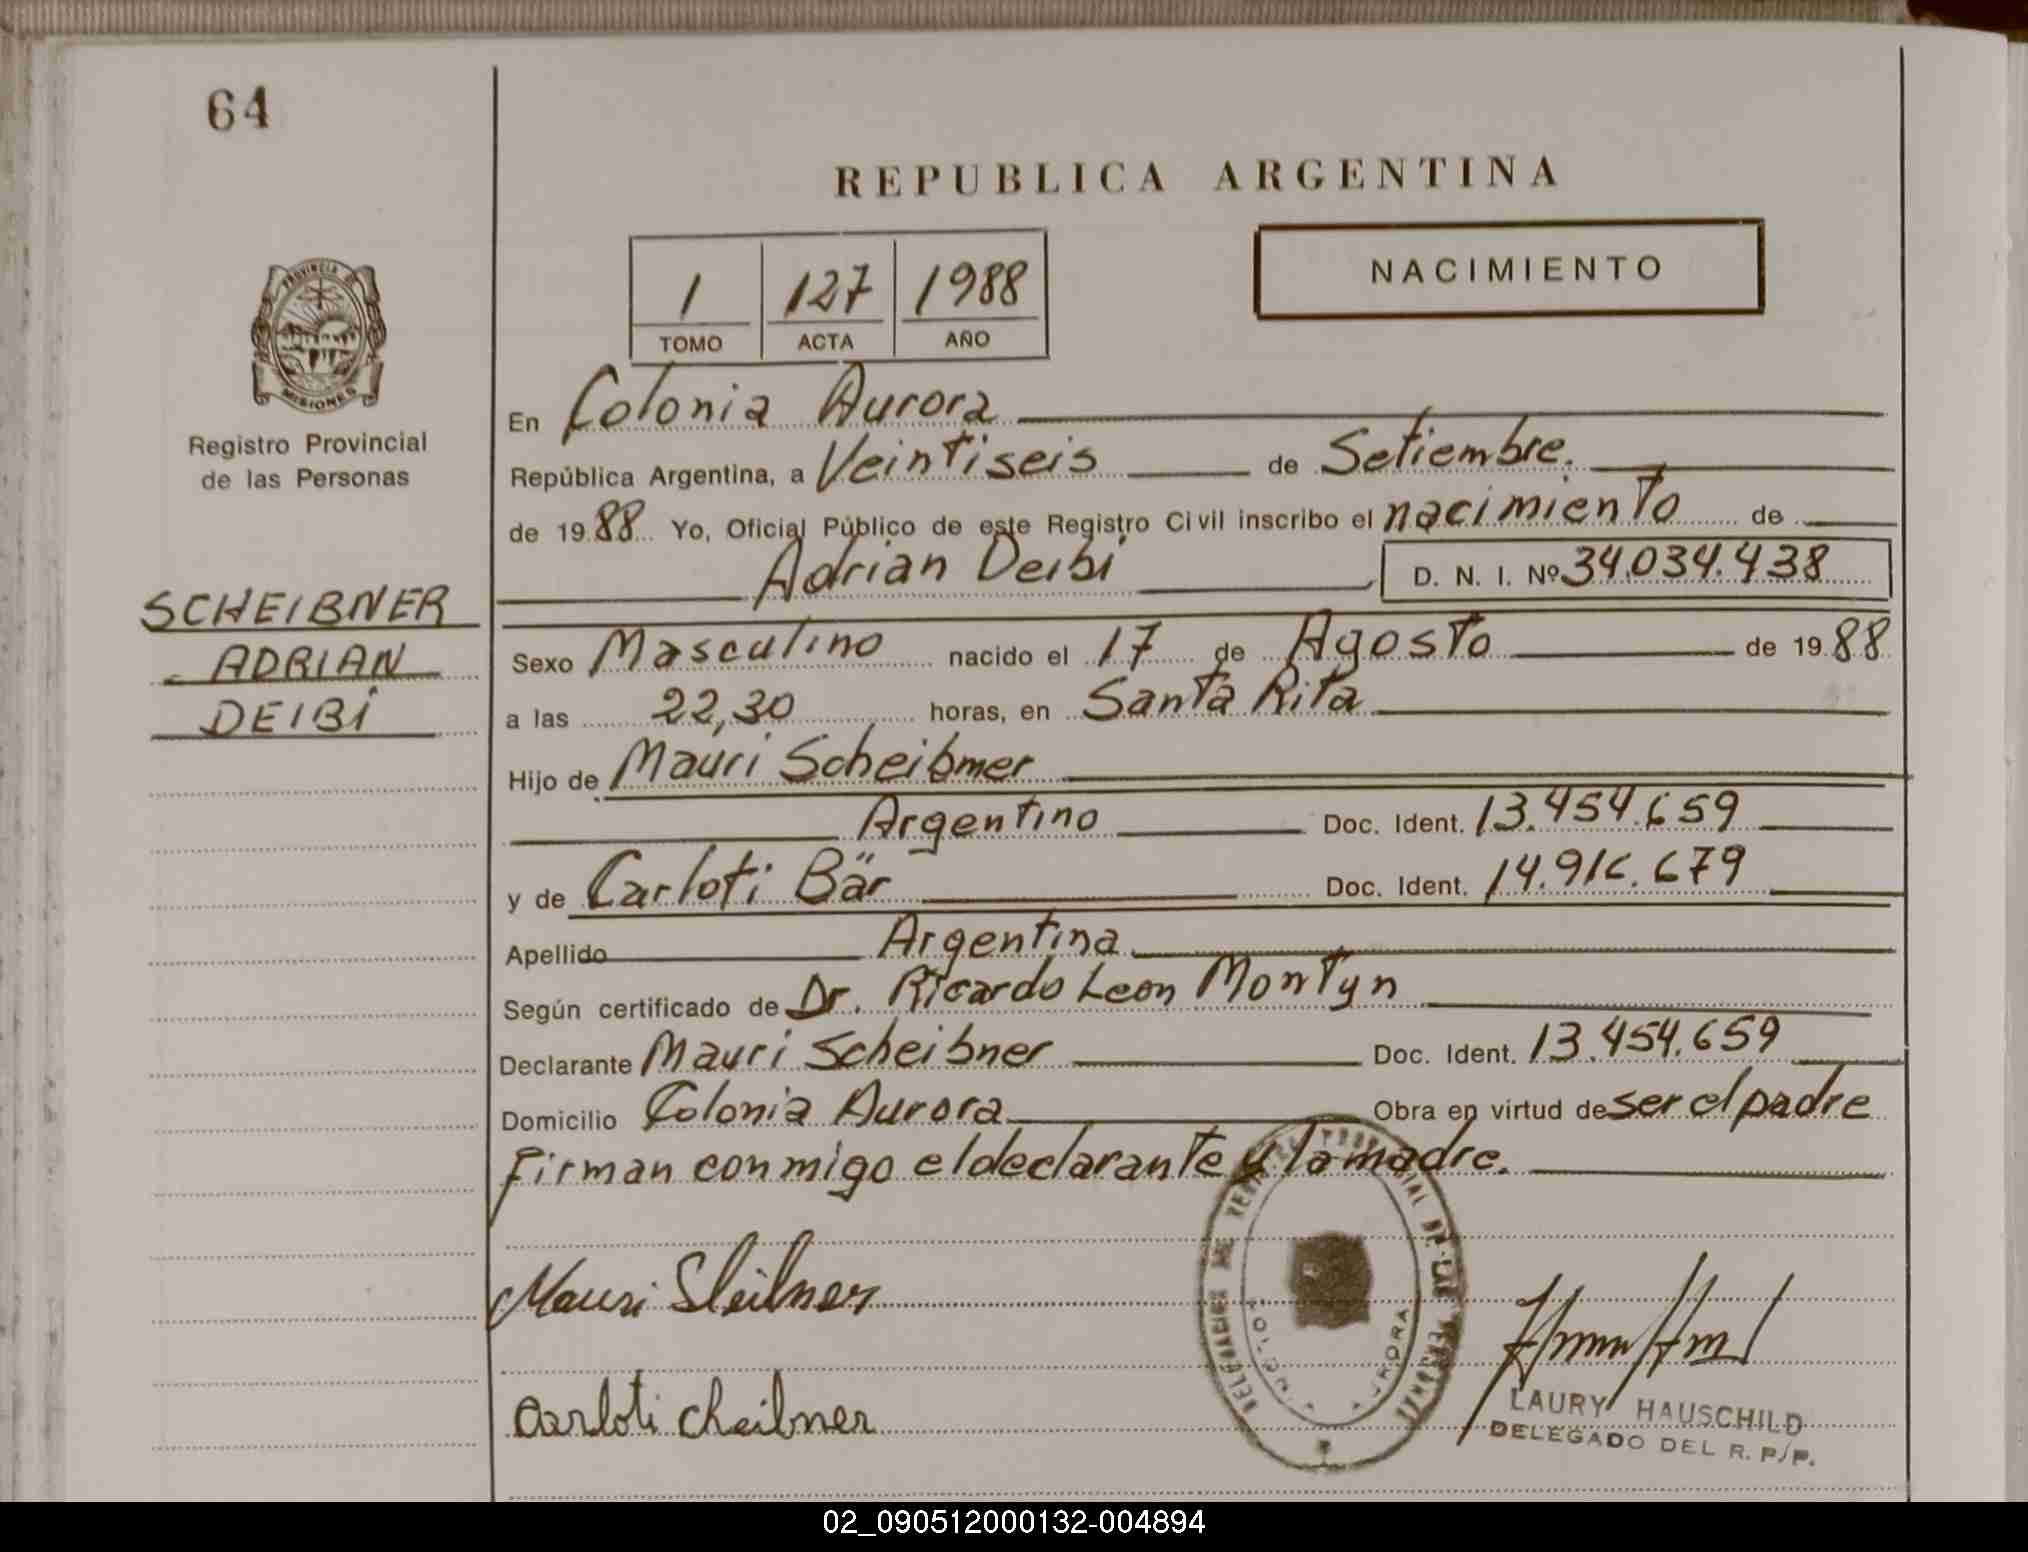 64
REPUBLICA ARGENTINA
1 127 1988
TOMO ACTA AÑO
NACIMIENTO
PROVINCIA DE
MISIONES
Registro Provincial
de las Personas
SCHEIBNER
ADRIAN
DEIBI
En Colonia Aurora
República Argentina, a Veintiseis de Setiembre.
de 1988 Yo, Oficial Público de este Registro Civil inscribo el nacimiento de
Adrian Deibi D. N. I. Nº 34.034.438
Sexo Masculino nacido el 17 de Agosto de 1988
a las 22,30 horas, en Santa Rita
Hijo de Mauri Scheibner
Argentino Doc. Ident. 13.454.659
y de Carloti Bär Doc. Ident. 14.916.679
Apellido Argentina
Según certificado de Dr. Ricardo Leon Montyn
Declarante Mauri Scheibner Doc. Ident. 13.454.659
Domicilio Colonia Aurora Obra en virtud de ser el padre
Firman conmigo el declarante y la madre.
Mauri Sleibner
Carloti cheibner
LAURY HAUSCHILD
DELEGADO DEL R. P/P.
02_090512000132-004894